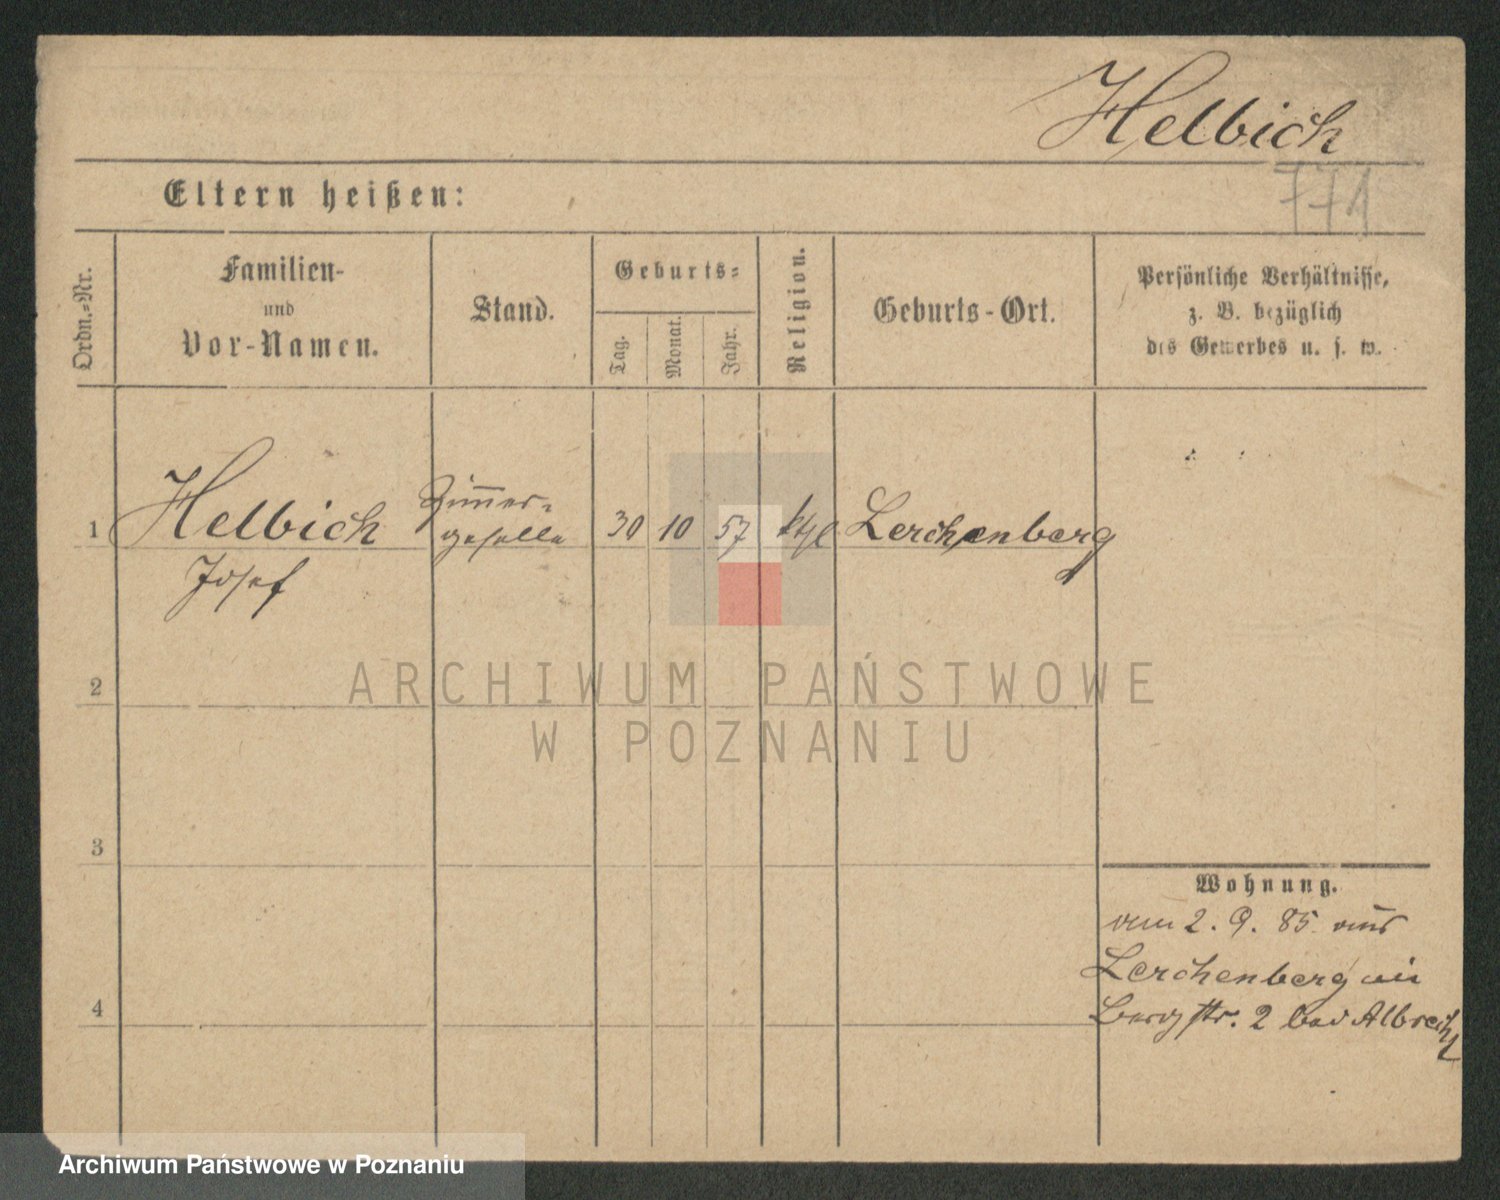 Helbich
771
Eltern heißen:
Ordn.-Nr.
Familien-
und
Vor-Namen.
Stand.
Geburts-
Tag.
Monat.
Jahr.
Religion.
Geburts-Ort.
Persönliche Verhältnisse,
z. B. bezüglich
des Gewerbes u. s. w.
1 Helbich Zimmer-
geselle 30 10 57 ktl Lerchenberg
Josef
ARCHIWUM PAŃSTWOWE
W POZNANIU
2
3
4
Wohnung.
2. 9. 85 aus
Lerchenberg
Bergstr. 2 bei Albrecht
Archiwum Państwowe w Poznaniu